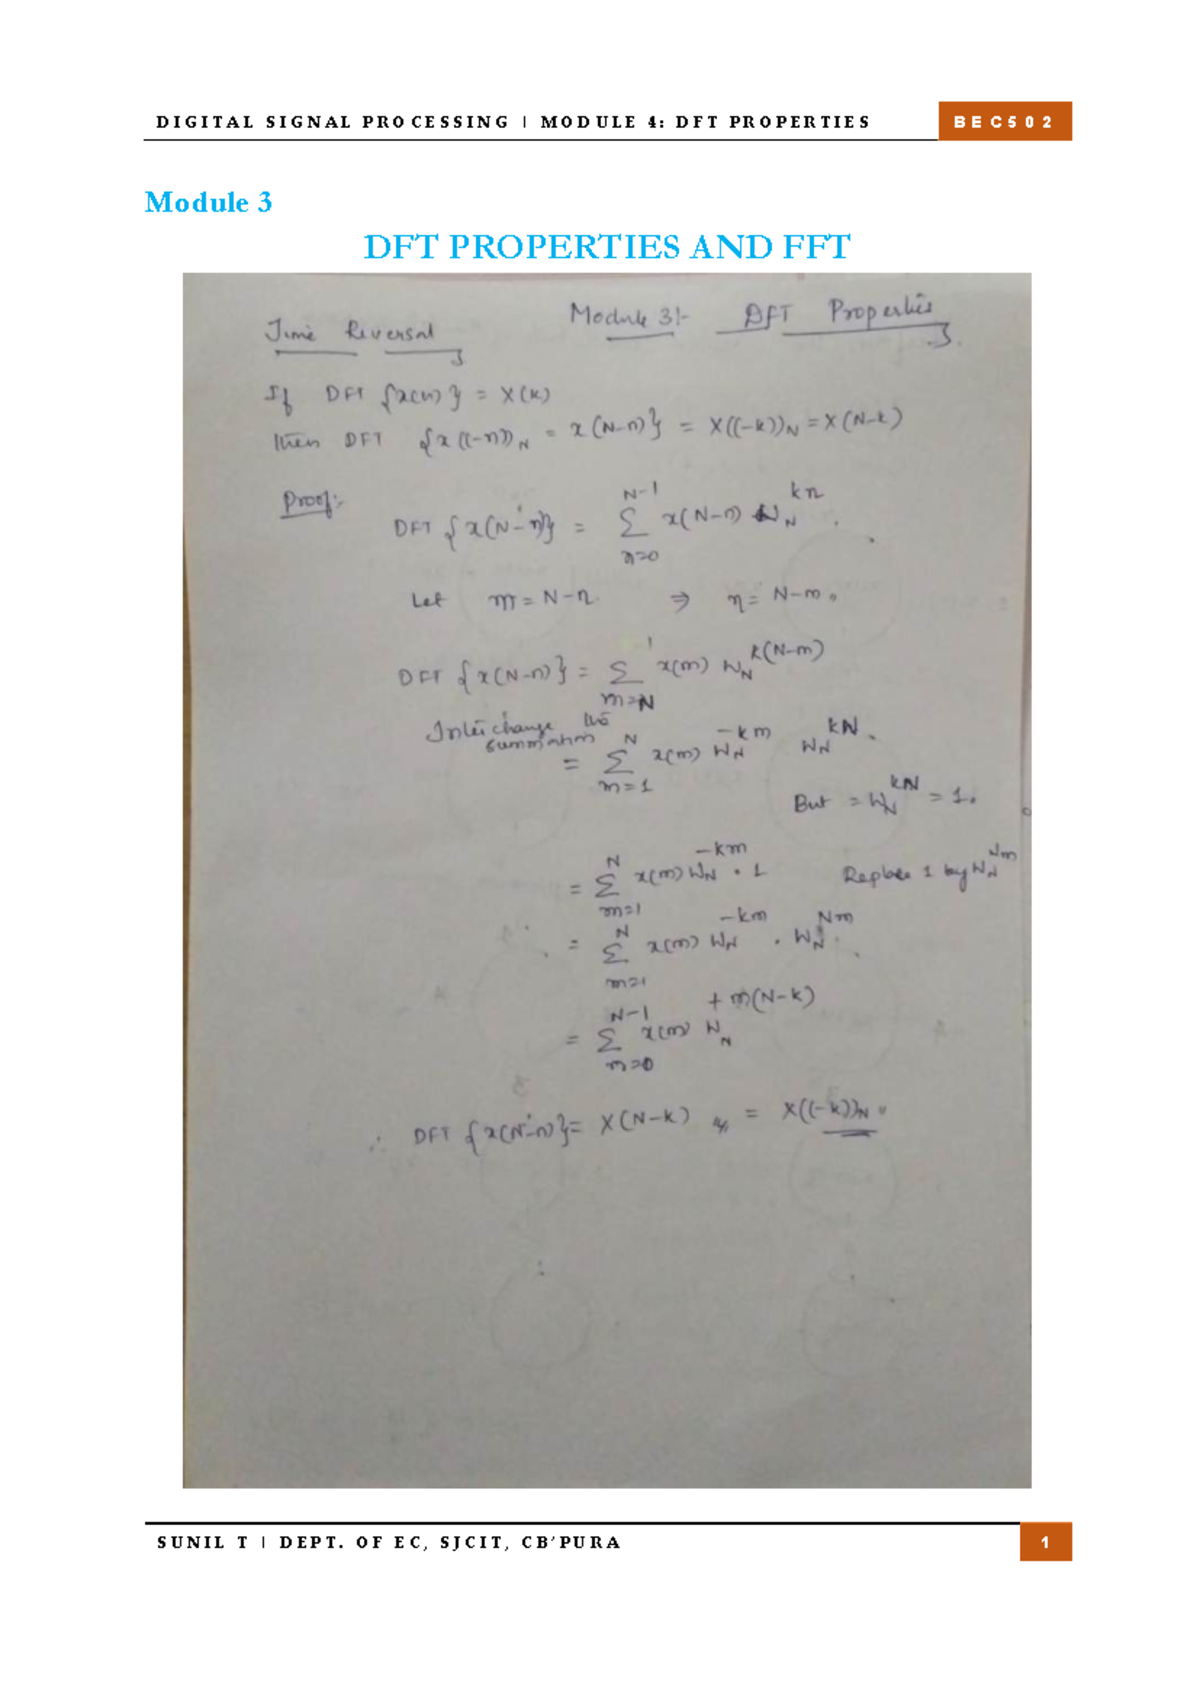 DIGITAL SIGNAL PROCESSING | MODULE 4: DFT PROPERTIES BEC502
Module 3
DFT PROPERTIES AND FFT
Module 3:- DFT Properties
Time Reversal
If DFT {x(n)} = X(k)
then DFT {x((-n))_N = x(N-n)} = X((-k))_N = X(N-k)
Proof:-
DFT {x(N-n)} = Σ_{n=0}^{N-1} x(N-n) W_N^{kn}.
Let m = N-n. ⇒ n = N-m.
DFT {x(N-n)} = Σ_{m=N}^{1} x(m) W_N^{k(N-m)}
Interchange the summation
= Σ_{m=1}^{N} x(m) W_N^{-km} W_N^{kN}.
But = W_N^{kN} = 1.
= Σ_{m=1}^{N} x(m) W_N^{-km} · 1 Replace 1 by W_N^{Nm}
= Σ_{m=1}^{N} x(m) W_N^{-km} · W_N^{Nm}.
= Σ_{m=0}^{N-1} x(m) W_N^{+m(N-k)}
∴ DFT {x(N-n)} = X(N-k) = X((-k))_N.
SUNIL T | DEPT. OF EC, SJCIT, CB'PURA 1